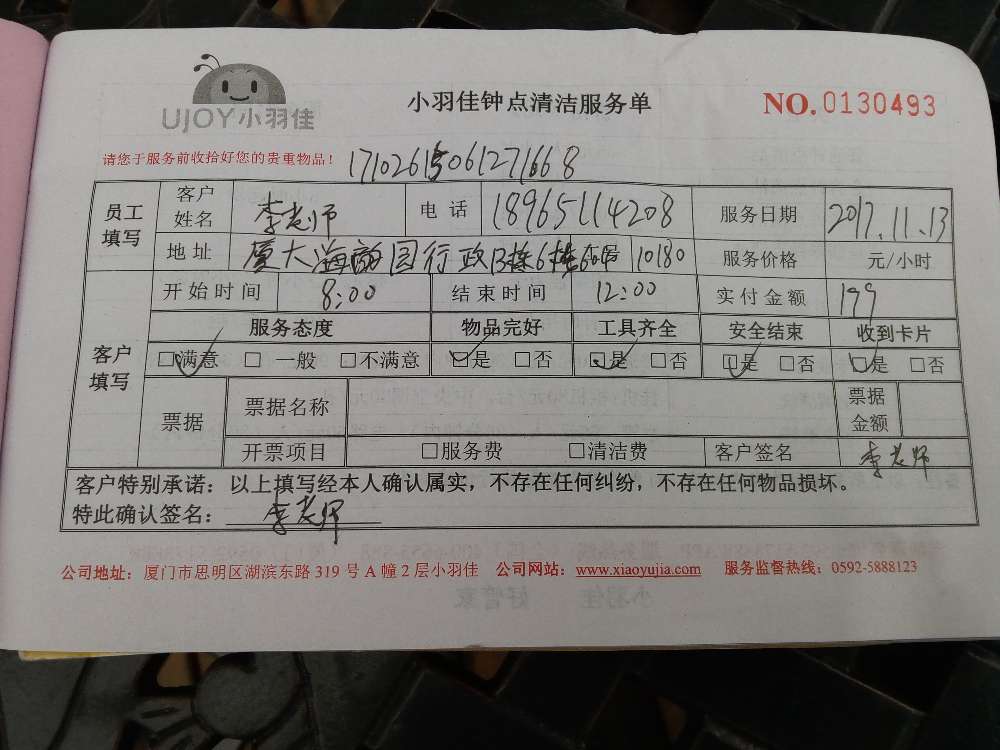 UJOY小羽佳
小羽佳钟点清洁服务单
NO.0130493
请您于服务前收拾好您的贵重物品！
员工填写 客户姓名 李老师 电话 18965114208 服务日期 2017.11.13
地址 厦大海 国行政B栋6 10180 服务价格 元/小时
客户填写 开始时间 8:00 结束时间 12:00 实付金额 199
服务态度 物品完好 工具齐全 安全结束 收到卡片
□满意 □一般 □不满意 □是 □否 □是 □否 □是 □否 □是 □否
票据 票据名称 票据金额
开票项目 □服务费 □清洁费 客户签名 李老师
客户特别承诺：以上填写经本人确认属实，不存在任何纠纷，不存在任何物品损坏。
特此确认签名： 李老师
公司地址：厦门市思明区湖滨东路 319 号 A 幢 2 层小羽佳 公司网站：www.xiaoyujia.com 服务监督热线：0592-5888123